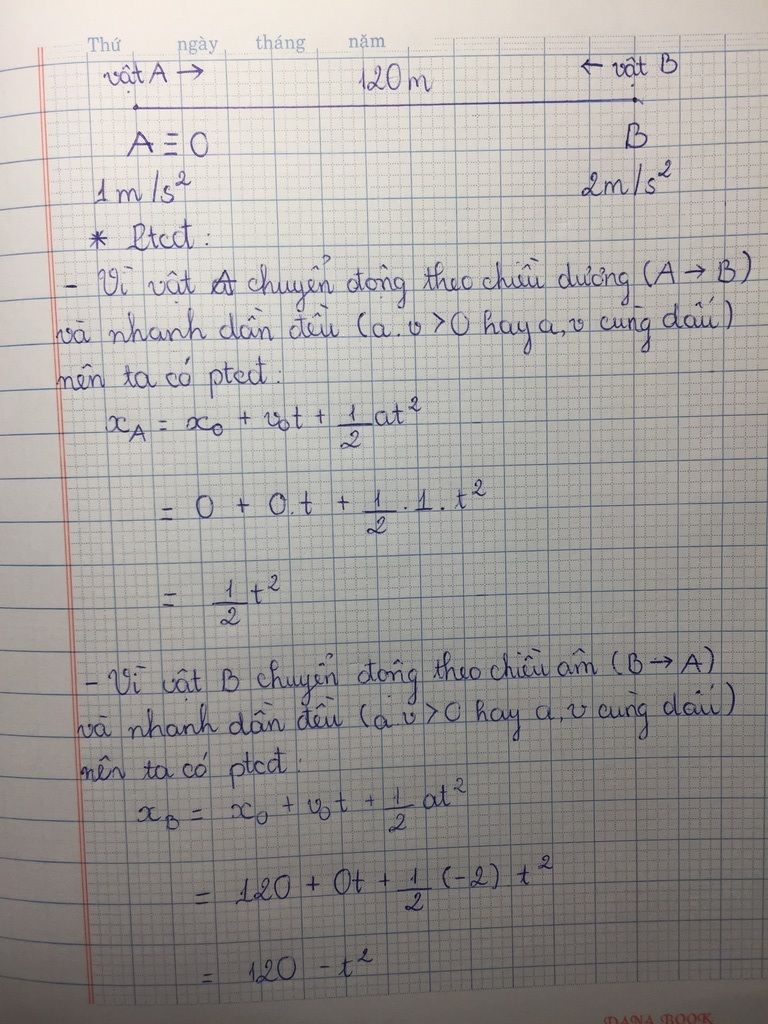 Thứ ngày tháng năm
vật A → 120m ← vật B
A ≡ O B
1m/s² 2m/s²
* Ptcđ:
- Vì vật A chuyển động theo chiều dương (A → B)
và nhanh dần đều (a.v > 0 hay a, v cùng dấu)
nên ta có ptcđ:
x_A = x₀ + v₀t + 1/2 at²
= 0 + 0.t + 1/2 . 1 . t²
= 1/2 t²
- Vì vật B chuyển động theo chiều âm (B → A)
và nhanh dần đều (a.v > 0 hay a, v cùng dấu)
nên ta có ptcđ:
x_B = x₀ + v₀t + 1/2 at²
= 120 + 0t + 1/2 (-2) t²
= 120 - t²
DANA BOOK